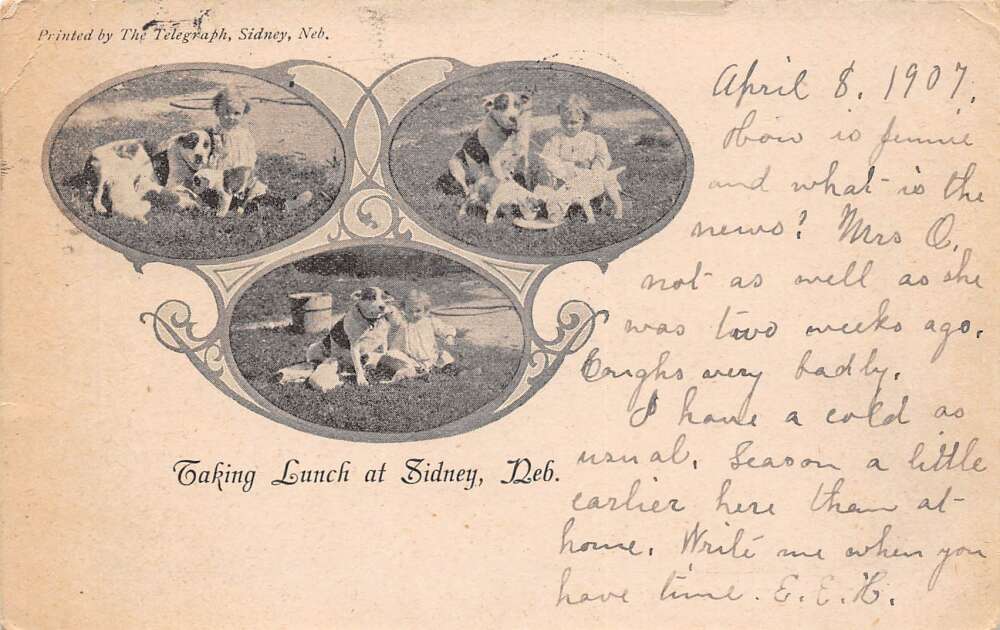 Printed by The Telegraph, Sidney, Neb.
April 8, 1907.
How is Jennie
and what is the
news? Mrs O.
not as well as she
was two weeks ago.
Coughs very badly.
I have a cold as
usual. Season a little
earlier here than at
home. Write me when you
have time. E. E. H.
Taking Lunch at Sidney, Neb.